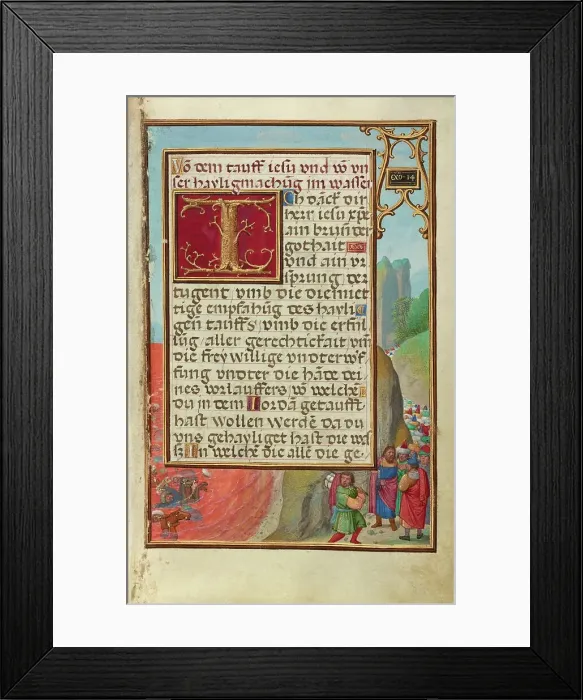 Võ dem tauff iesu vnd võ vn
ser hayligmachũg im wasser
Ich dãck dir
herr iesu xpe
ain brun der
gothait
vnd ain vr
sprung der
tugent vmb die diemiet
tige empfahũg des hayli
gen tauffs vmb die erfül
lũg aller gerechtickait vñ
die frey willige vndterwẽr
fung vndter die hãde dei
nes vorlauffers in welchẽ
du in dem Iordã getaufft
hast wollen werdẽ da du
vns gehayliget hast die was
ser In welchẽ die alle die ge
exo · 14